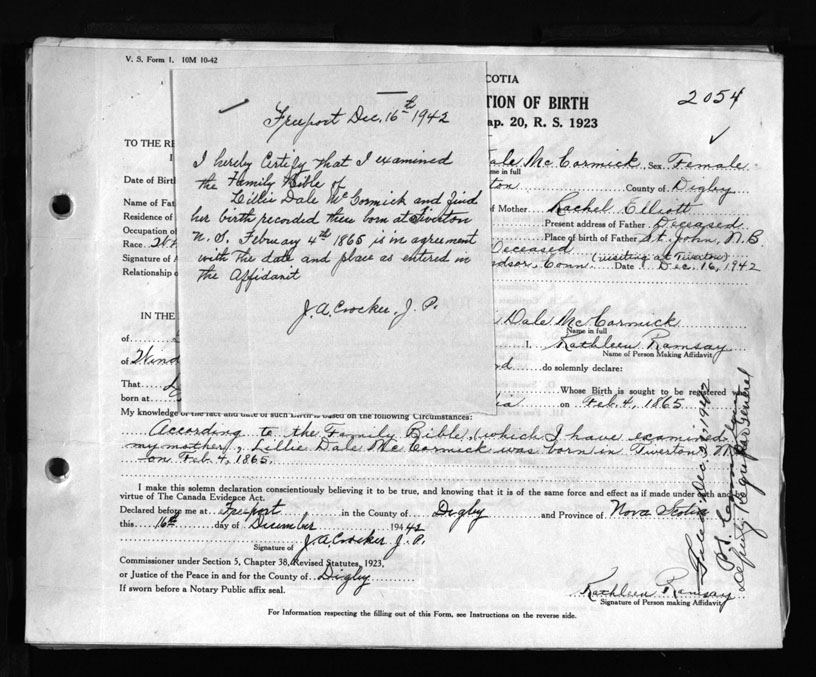 V. S. Form 1. 10M 10-42
COTIA
TION OF BIRTH
ap. 20, R. S. 1923
2054
Freeport Dec. 16th 1942
I hereby Certify that I examined
the Family Bible of
Lillie Dale McCormick and find
her birth recorded there born at Tiverton
N. S. February 4th 1865 is in agreement
with the date and place as entered in
the Affidavit
J. A. Crocker, J. P.
TO THE RE
Dale McCormick Sex Female
me in full
Date of Birth
ton County of Digby
Name of Fat
of Mother Rachel Elliott
Residence of
Present address of Father Deceased
Occupation of
Place of birth of Father St. John, N. B.
Race
Deceased (visiting at Tiverton)
Signature of
ndsor, Conn. Date Dec. 16, 1942
Relationship o
IN THE
Dale McCormick
Name in full
of
I, Kathleen Ramsay
Name of Person Making Affidavit
of Wind
do solemnly declare:
That
Whose Birth is sought to be registered
born at
ia on Feb. 4, 1865.
My knowledge of the fact and date of such Birth is based on the following Circumstances:
According to the Family Bible, (which I have examined
my mother, Lillie Dale McCormick was born in Tiverton, N.
on Feb. 4, 1865.
I make this solemn declaration conscientiously believing it to be true, and knowing that it is of the same force and effect as if made under oath and
virtue of The Canada Evidence Act.
Declared before me at Freeport in the County of Digby and Province of Nova Scotia
this 16th day of December 194 42
Signature of J. A. Crocker J. P.
Commissioner under Section 5, Chapter 38, Revised Statutes, 1923,
or Justice of the Peace in and for the County of Digby
If sworn before a Notary Public affix seal.
Kathleen Ramsay
Signature of Person making Affidavit
For Information respecting the filling out of this Form, see Instructions on the reverse side.
Deputy Registrar General